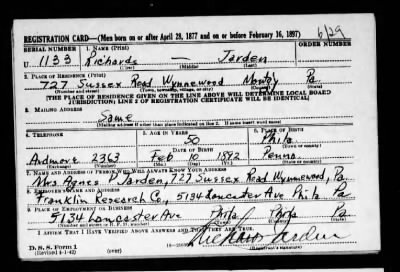 REGISTRATION CARD—(Men born on or after April 28, 1877 and on or before February 16, 1897)
6/29
SERIAL NUMBER 1. NAME (Print) ORDER NUMBER
U 1133 Richards — Jarden
(First) (Middle) (Last)
2. PLACE OF RESIDENCE (Print)
727 Sussex Road Wynnewood Pa
(Number and street) (Town, township, village, or city) (County) (State)
[THE PLACE OF RESIDENCE GIVEN ON THE LINE ABOVE WILL DETERMINE LOCAL BOARD
JURISDICTION; LINE 2 OF REGISTRATION CERTIFICATE WILL BE IDENTICAL]
3. MAILING ADDRESS
Same
[Mailing address if other than place indicated on line 2. If same insert word same]
4. TELEPHONE 5. AGE IN YEARS 6. PLACE OF BIRTH
50 Phila
DATE OF BIRTH
Ardmore 2363 Feb 10 1892 Penna
(Exchange) (Number) (Mo.) (Day) (Yr.) (State or country)
7. NAME AND ADDRESS OF PERSON WHO WILL ALWAYS KNOW YOUR ADDRESS
Mrs Agnes D Jarden, 727 Sussex Road Wynnewood, Pa
8. EMPLOYER'S NAME AND ADDRESS
Franklin Research Co., 5134 Lancaster Ave Phila Pa
9. PLACE OF EMPLOYMENT OR BUSINESS
5134 Lancaster Ave Phila Phila Pa
(Number and street or R. F. D. number) (Town) (County) (State)
I AFFIRM THAT I HAVE VERIFIED ABOVE ANSWERS AND THAT THEY ARE TRUE.
D. S. S. Form 1
(Revised 4-1-42) (over)
Richards Jarden